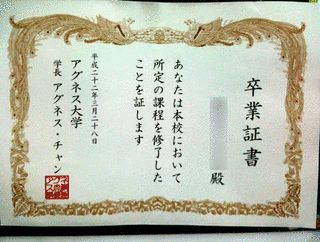 卒業証書
殿
あなたは本校において
所定の課程を修了した
ことを証します
平成二十二年三月二十八日
アグネス大学
学長 アグネス・チャン